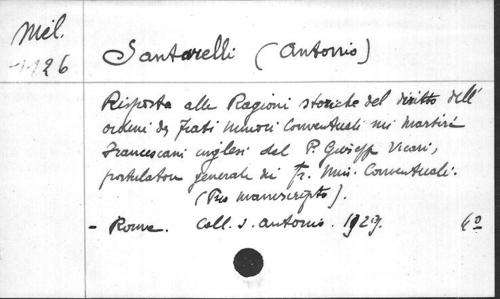 Mél.
126
Santarelli (Antonio)
Risposta alle Ragioni storiche del diritto dell'
ordine dei Frati minori Conventuali sui Martiri
Francescani inglesi del P. Giuseppe Vicari,
postulatore generale dei Fr. Min. Conventuali.
(Pro manuscripto).
- Rome. Coll. S. Antonio. 1929. 4º